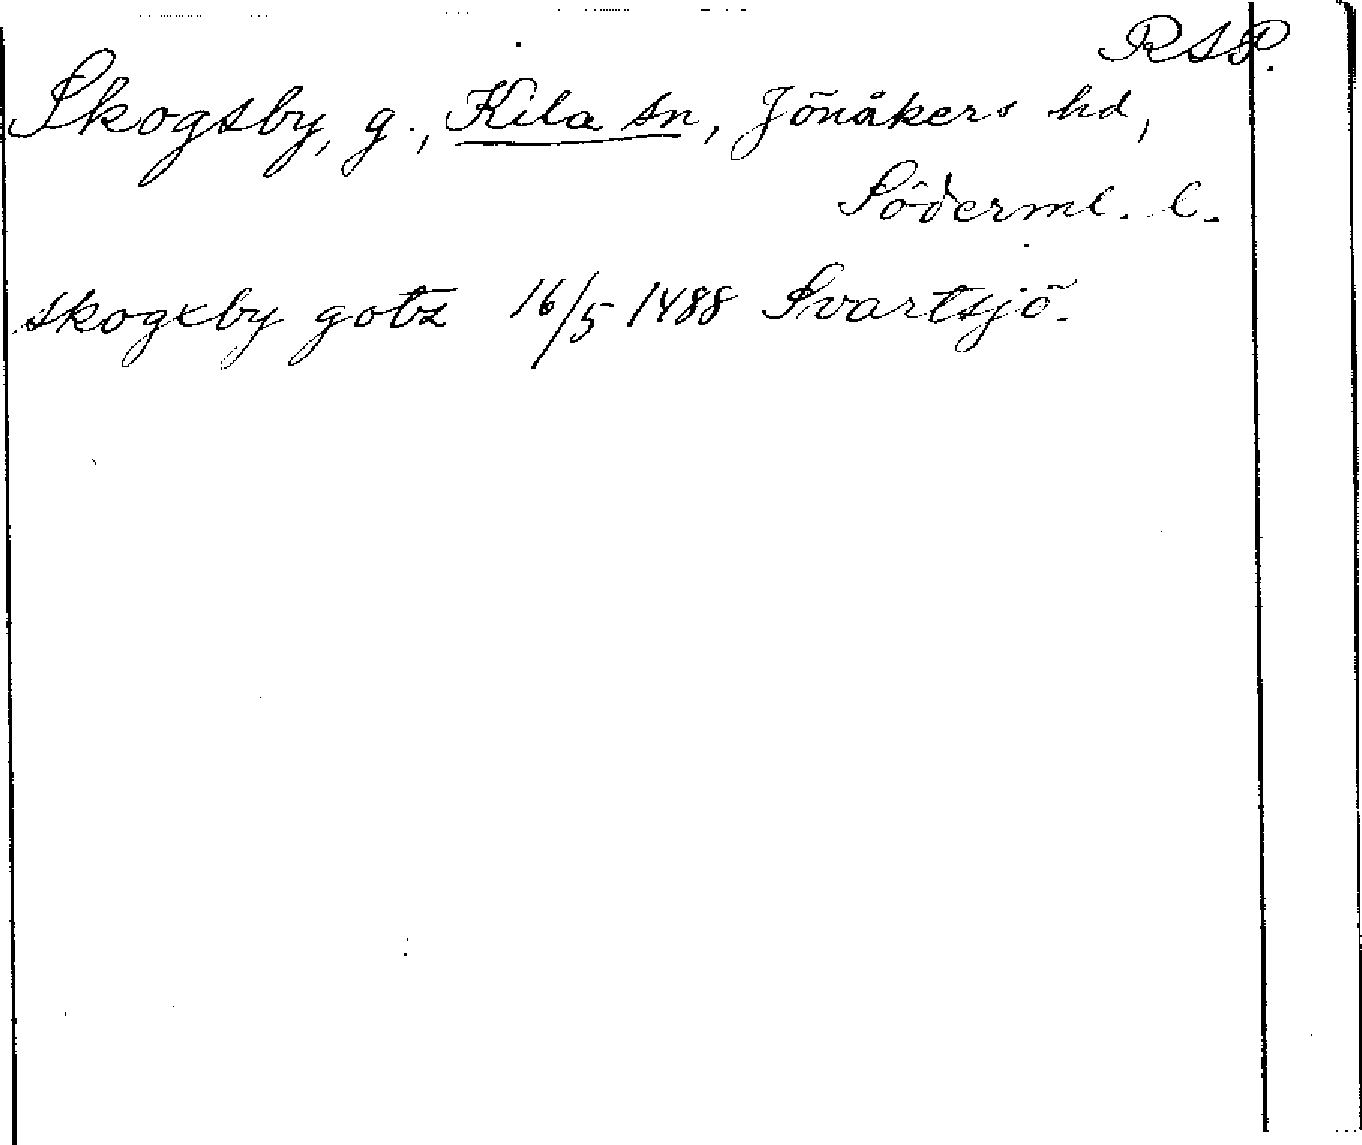 RAP.
Skogsby, g., Kila sn, Jönåkers hd,
Söderml. l.
skogxby gotz 16/5 1488 Svartsjö.